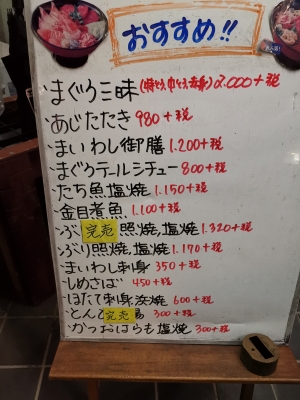 おすすめ!!
・まぐろ三昧(特とろ,中とろ,赤身)2.000+税
・あじたたき 980+税
・まいわし御膳 1.200+税
・まぐろテールシチュー 800+税
・たち魚塩焼 1.150+税
・金目煮魚 1.100+税
・ぶ 完売 照焼,塩焼 1.320+税
・ぶり照焼,塩焼 1.170+税
・まいわし刺身 350+税
・しめさば 450+税
・ほたて刺身浜焼 600+税
・とんで 完売 300+税
・かつおはらも塩焼 300+税